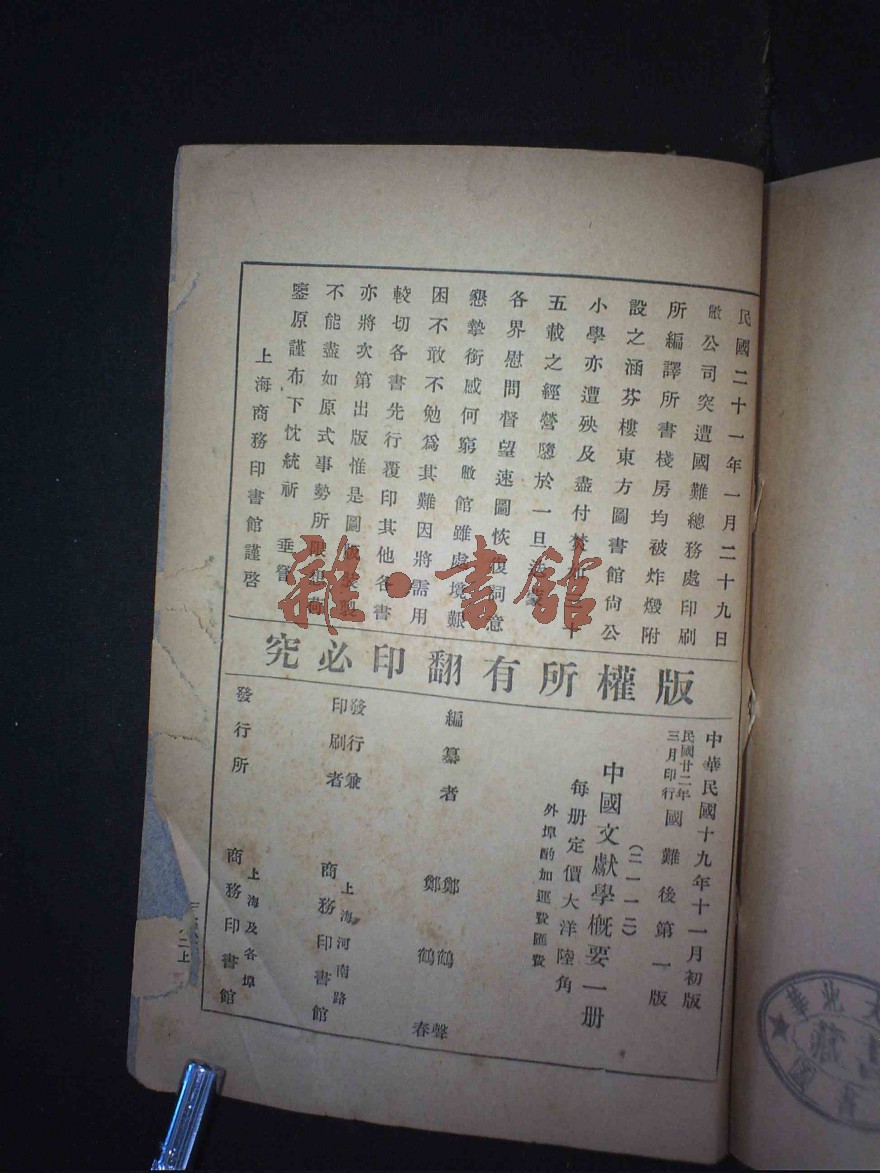 民國二十一年一月二十九日
敝公司突遭國難總務處印刷
所編譯所書棧房均被炸燬附
設之涵芬樓東方圖書館尙公
小學亦遭殃及盡付焚如三十
五載之經營隳於一旦迭蒙
各界慰問督望速圖恢復詞意
懇摯銜感何窮敝館雖處境艱
困不敢不勉爲其難因將需用
較切各書先行覆印其他各書
亦將次第出版惟是圖版裝製
不能盡如原式事勢所限想荷
鑒原謹布下忱統祈 垂詧
上海商務印書館謹啓
版權所有翻印必究
中華民國十九年十一月初版
民國廿二年三月印行 國難後第一版
(二一一二)
中國文獻學概要一册
每册定價大洋陸角
外埠酌加運費匯費
編纂者 鄭鶴聲 鄭鶴春
發行兼印刷者 上海河南路 商務印書館
發行所 上海及各埠 商務印書館
雜·書館